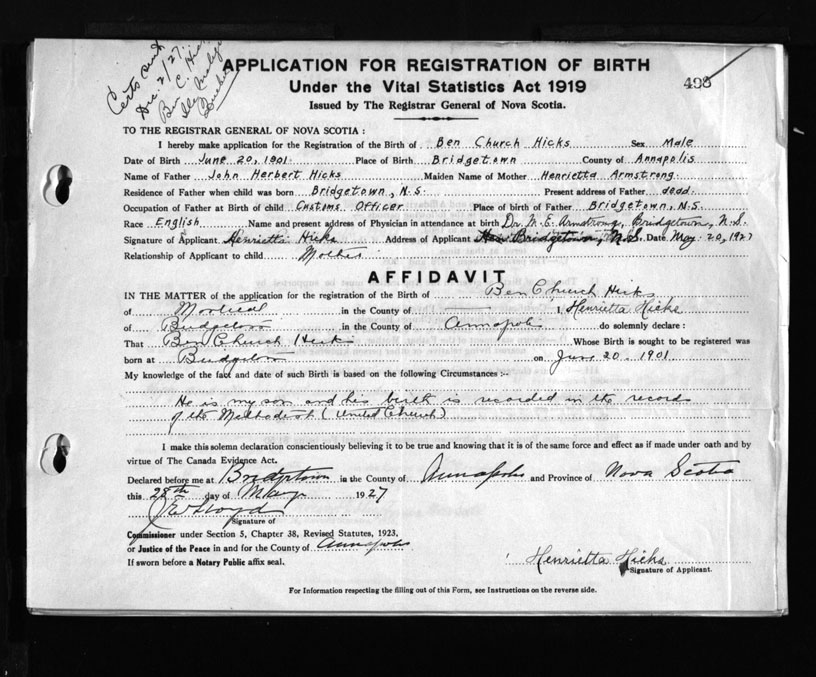 Certs sent
Dec 2/27.
Ben C. Hicks
APPLICATION FOR REGISTRATION OF BIRTH
Under the Vital Statistics Act 1919
498
Issued by The Registrar General of Nova Scotia.
TO THE REGISTRAR GENERAL OF NOVA SCOTIA:
I hereby make application for the Registration of the Birth of Ben Church Hicks Sex Male
Date of Birth June 20, 1901. Place of Birth Bridgetown County of Annapolis
Name of Father John Herbert Hicks Maiden Name of Mother Henrietta Armstrong.
Residence of Father when child was born Bridgetown, N.S. Present address of Father dead.
Occupation of Father at Birth of child Customs Officer Place of birth of Father Bridgetown, N.S.
Race English Name and present address of Physician in attendance at birth Dr. M. E. Armstrong, Bridgetown, N.S.
Signature of Applicant Henrietta Hicks Address of Applicant Bridgetown, N.S. Date May 20, 1927
Relationship of Applicant to child Mother
AFFIDAVIT
IN THE MATTER of the application for the registration of the Birth of Ben Church Hicks
of Montreal in the County of I, Henrietta Hicks
of Bridgetown in the County of Annapolis do solemnly declare:
That Ben Church Hicks Whose Birth is sought to be registered was
born at Bridgetown on June 20. 1901
My knowledge of the fact and date of such Birth is based on the following Circumstances:-
He is my son and his birth is recorded in the records
of the Methodist (United Church)
I make this solemn declaration conscientiously believing it to be true and knowing that it is of the same force and effect as if made under oath and by
virtue of The Canada Evidence Act.
Declared before me at Bridgetown in the County of Annapolis and Province of Nova Scotia
this 28th day of May 1927
Signature of
Commissioner under Section 5, Chapter 38, Revised Statutes, 1923,
or Justice of the Peace in and for the County of Annapolis
If sworn before a Notary Public affix seal.
Henrietta Hicks
Signature of Applicant.
For Information respecting the filling out of this Form, see Instructions on the reverse side.